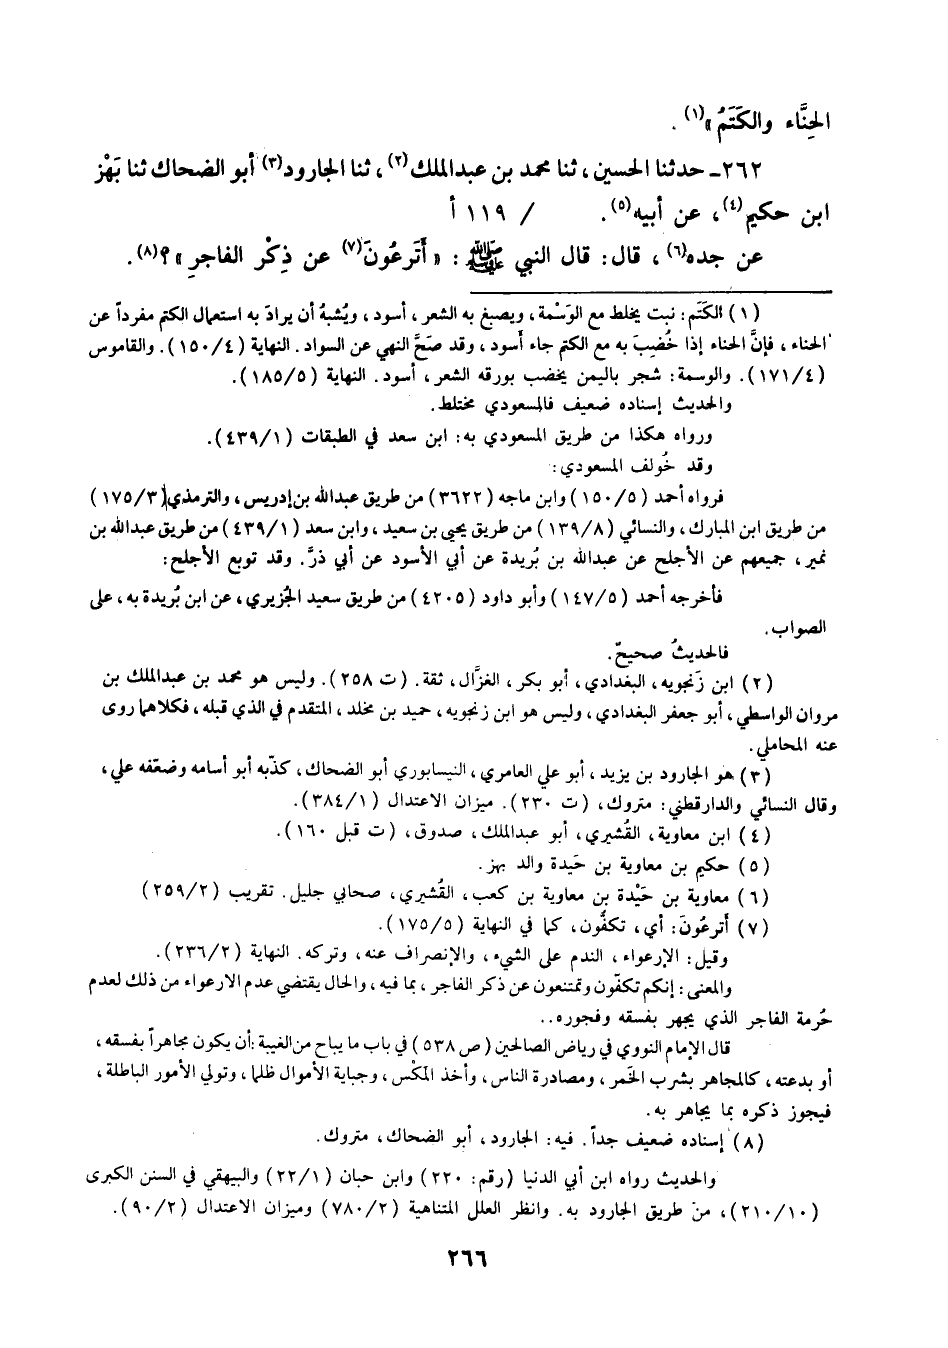 الحِنَّاء والكَتَمُ»(١).
٢٦٢ـ حدثنا الحسين، ثنا محمد بن عبدالملك(٢)، ثنا الجارود(٣) أبو الضحاك ثنا بَهْز
ابن حكيم(٤)، عن أبيه(٥). / ١١٩ أ
عن جده(٦)، قال: قال النبي ﷺ: «أَتَرعُونَ(٧) عن ذِكْر الفاجرِ»؟(٨).
(١) الكَتَم: نبت يخلط مع الوَسْمة، ويصبغ به الشعر، أسود، ويُشبهُ أن يرادَ به استعمال الكتم مفرداً عن
الحناء، فإنَّ الحناء إذا خُضِبَ به مع الكتم جاء أسود، وقد صَحَّ النهي عن السواد. النهاية (١٥٠/٤). والقاموس
(١٧١/٤). والوسمة: شجر باليمن يخضب بورقه الشعر، أسود. النهاية (١٨٥/٥).
والحديث إسناده ضعيف فالمسعودي مختلط.
ورواه هكذا من طريق المسعودي به: ابن سعد في الطبقات (٤٣٩/١).
وقد خُولف المسعودي:
فرواه أحمد (١٥٠/٥) وابن ماجه (٣٦٢٢) من طريق عبدالله بن إدريس، والترمذي (١٧٥/٣)
من طريق ابن المبارك، والنسائي (١٣٩/٨) من طريق يحيى بن سعيد، وابن سعد (٤٣٩/١) من طريق عبدالله بن
نمير، جميعهم عن الأجلح عن عبدالله بن بُريدة عن أبي الأسود عن أبي ذرَّ. وقد توبع الأجلح:
فأخرجه أحمد (١٤٧/٥) وأبو داود (٤٢٠٥) من طريق سعيد الجُزيري، عن ابن بُريدة به، على
الصواب.
فالحديثُ صحيحٌ.
(٢) ابن زَنجويه، البغدادي، أبو بكر، الغزَّال، ثقة. (ت ٢٥٨). وليس هو محمد بن عبدالملك بن
مروان الواسطي، أبو جعفر البغدادي، وليس هو ابن زنجويه، حميد بن مخلد، المتقدم في الذي قبله، فكلاهما روى
عنه المحاملي.
(٣) هو الجارود بن يزيد، أبو علي العامري، النيسابوري أبو الضحاك، كذّبه أبو أسامه وضعّفه علي،
وقال النسائي والدارقطني: متروك، (ت ٢٣٠). ميزان الاعتدال (٣٨٤/١).
(٤) ابن معاوية، القُشيري، أبو عبدالملك، صدوق، (ت قبل ١٦٠).
(٥) حكيم بن معاوية بن حَيدة والد بهز.
(٦) معاوية بن حَيْدة بن معاوية بن كعب، القُشيري، صحابي جليل. تقريب (٢٥٩/٢)
(٧) أَترعُونَ: أي، تكفُّون، كما في النهاية (١٧٥/٥).
وقيل: الإرعواء، الندم على الشيء، والإنصراف عنه، وتركه. النهاية (٢٣٦/٢).
والمعنى: إنكم تكفّون وتمتنعون عن ذكر الفاجر، بما فيه، والحال يقتضي عدم الارعواء من ذلك لعدم
حُرمة الفاجر الذي يجهر بفسقه وفجوره..
قال الإمام النووي في رياض الصالحين (ص ٥٣٨) في باب ما يباح من الغيبة: أن يكون مجاهراً بفسقه،
أو بدعته، كالمجاهر بشرب الخَمر، ومصادرة الناس، وأخذ المكْس، وجباية الأموال ظلما، وتولي الأمور الباطلة،
فيجوز ذكره بما يجاهر به.
(٨) إسناده ضعيف جداً. فيه: الجارود، أبو الضحاك، متروك.
والحديث رواه ابن أبي الدنيا (رقم: ٢٢٠) وابن حبان (٢٢/١) والبيهقي في السنن الكبرى
(٢١٠/١٠)، من طريق الجارود به. وانظر العلل المتناهية (٧٨٠/٢) وميزان الاعتدال (٩٠/٢).
٢٦٦